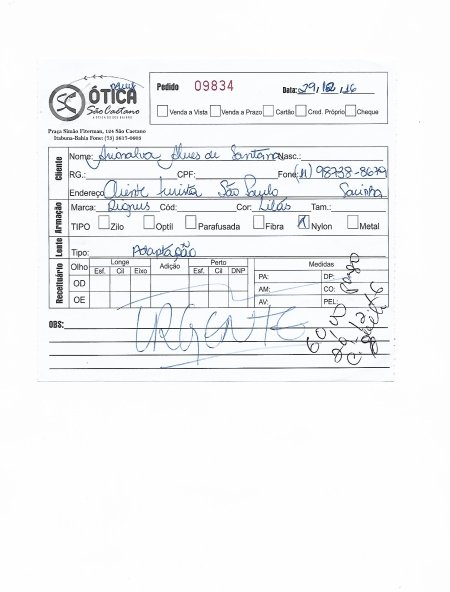 ÓTICA
São Caetano
Praça Simão Fiterman, 124 São Caetano
Itabuna-Bahia Fone: (73) 3617-0603
Pedido 09834 Data: 29/12/16
Venda a Vista Venda a Prazo Cartão Cred. Próprio Cheque
Cliente
Nome: Alves de Santana Nasc.:
RG.: CPF: Fone: (11) 98738-8679
Endereço Cliente turista São Paulo
Armação
Marca: Dignus Cód: Cor: Lilás Tam.:
TIPO Zilo Optil Parafusada Fibra X Nylon Metal
Lente
Tipo: Adaptação
Receituário
Olho Longe Adição Perto Medidas
Esf. Cil Eixo Esf. Cil DNP
OD PA: DP:
AM: CO:
OE AV: PEL:
OBS: URGENTE
60,00 pago
29.12.16